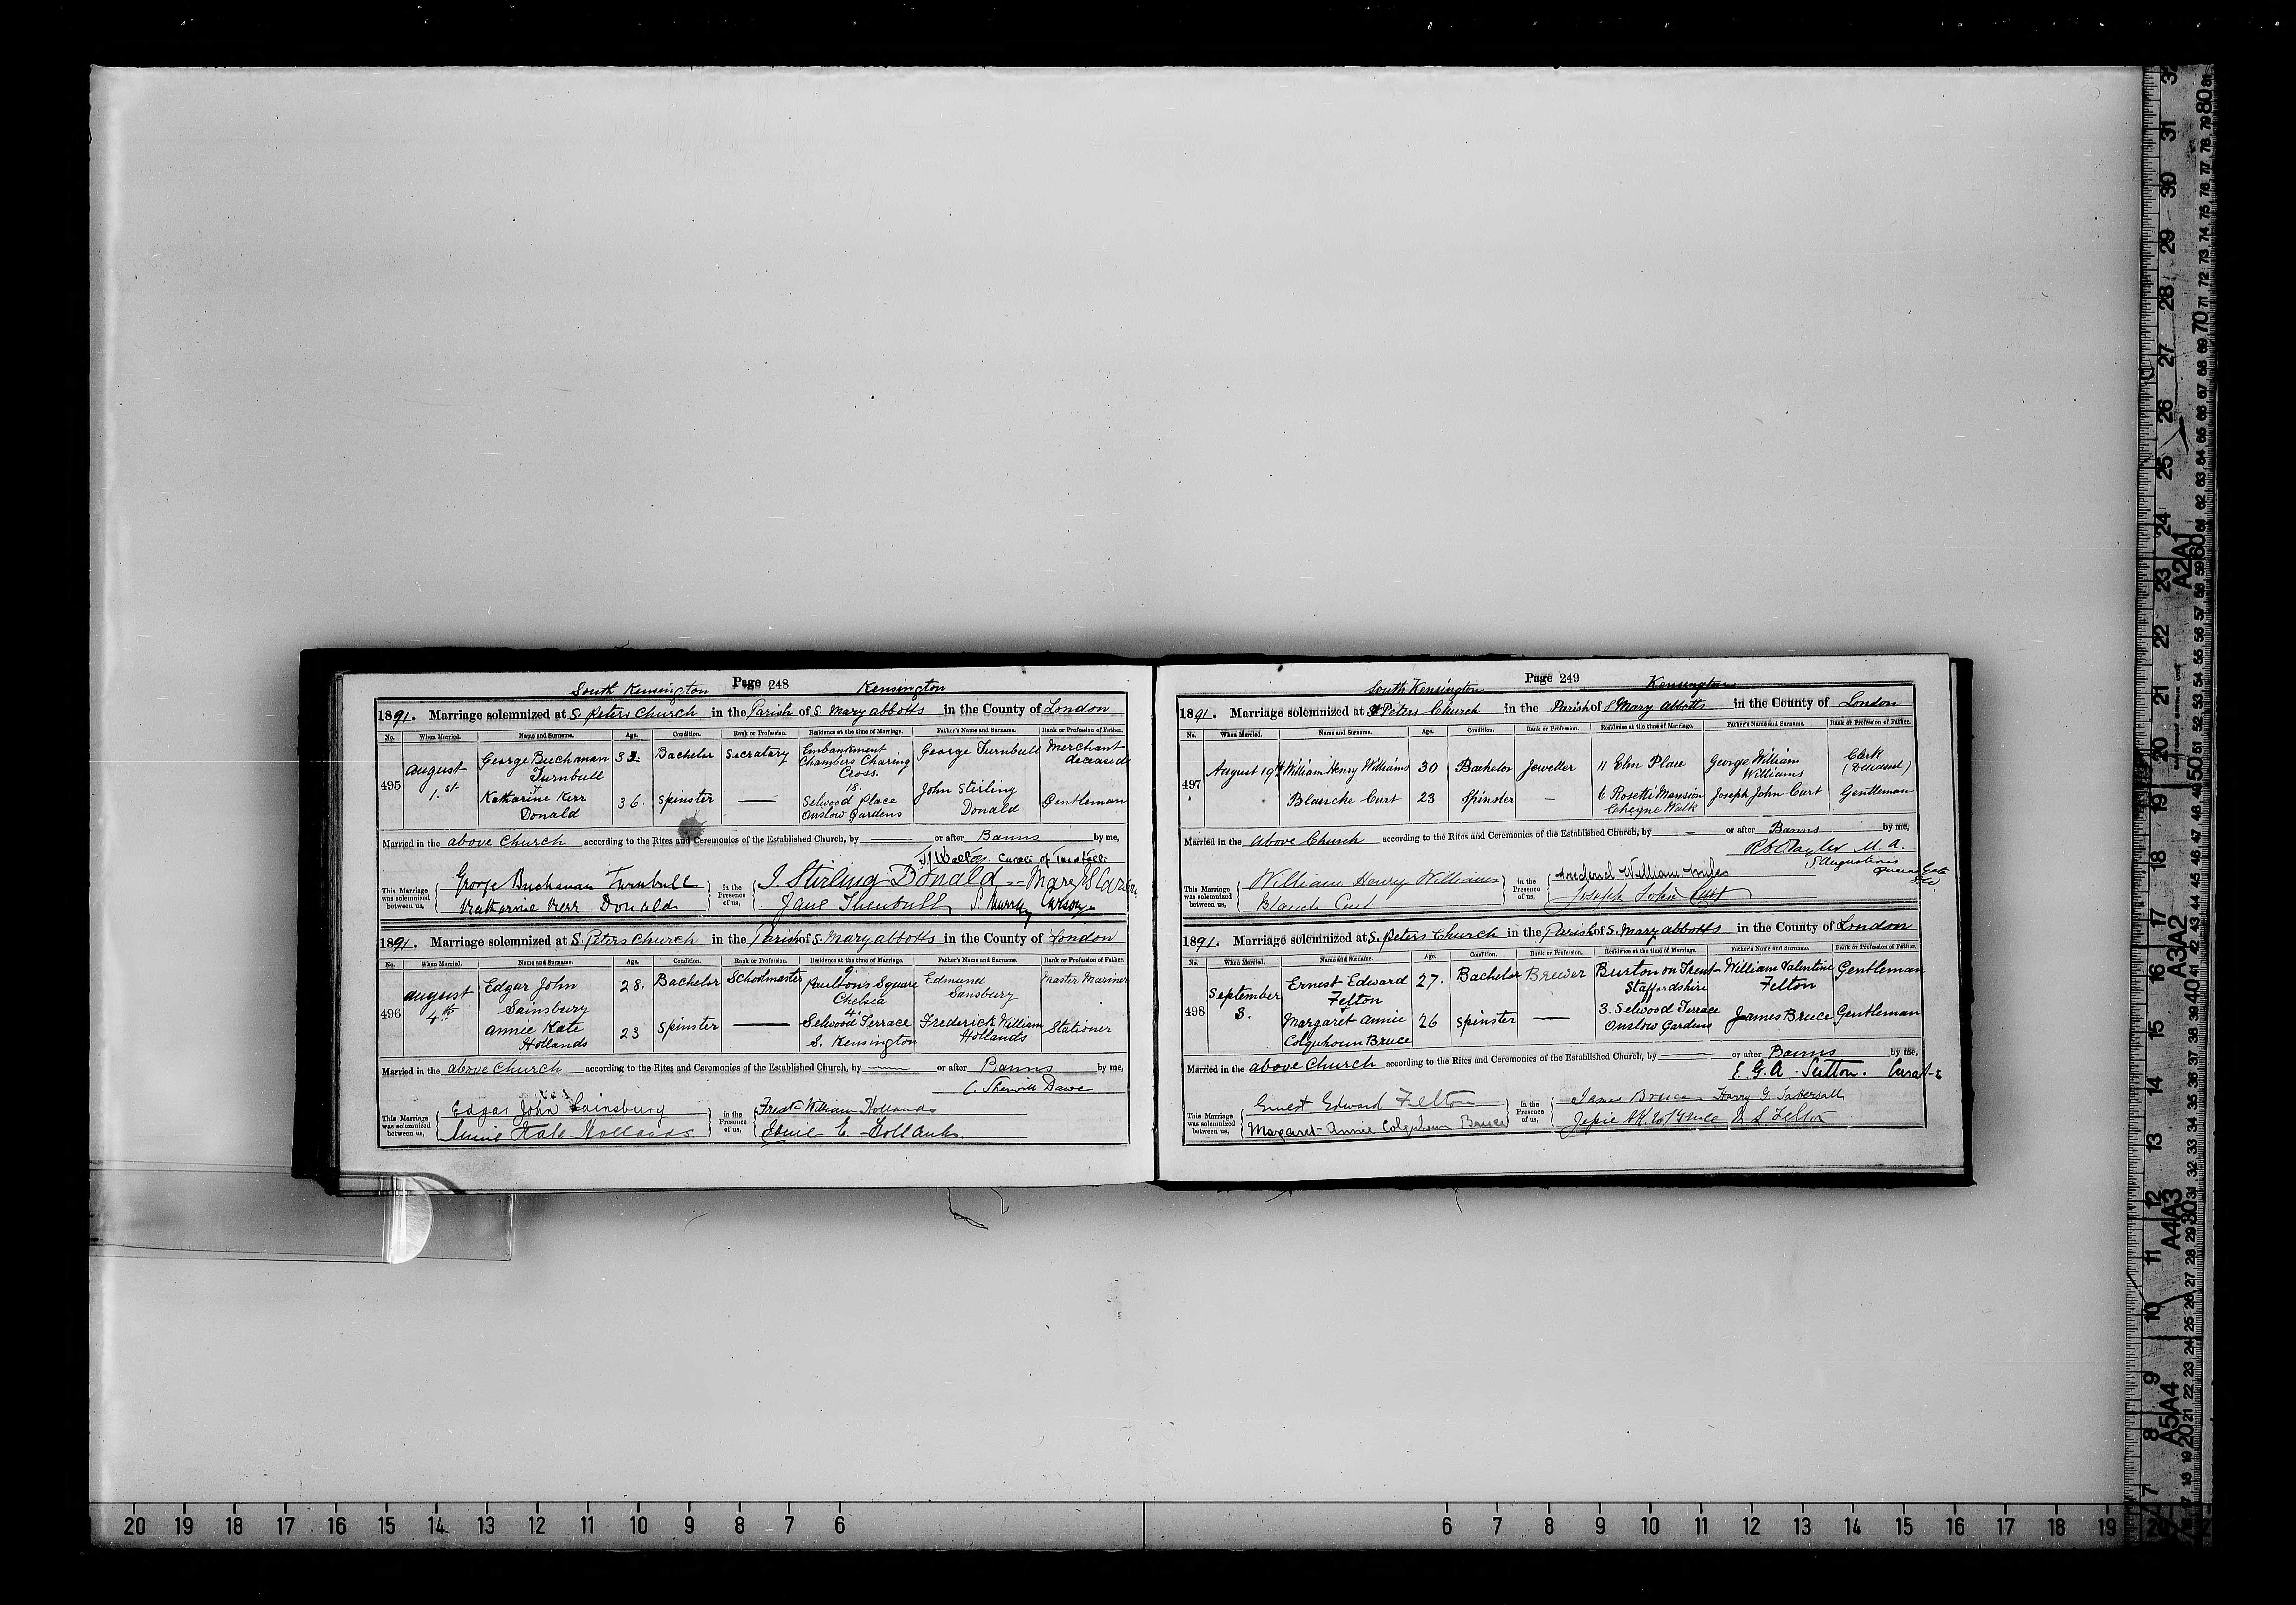 Page 248
South Kensington Kensington
1891. Marriage solemnized at S. Peters Church in the Parish of S. Mary abbotts in the County of London
No. When Married. Name and Surname. Age. Condition. Rank or Profession. Residence at the time of Marriage. Father's Name and Surname. Rank or Profession of Father.
495 august 1.st George Buchanan Turnbull Bachelor Secratary Embankment Chambers Charing Cross. George Turnbull Merchant deceased
Katharine Kerr Donald 36. Spinster — 18. Selwood Place Onslow Gardens John Stirling Donald Gentleman
Married in the above Church according to the Rites and Ceremonies of the Established Church, by — or after Banns by me,
Curate of
This Marriage was solemnized between us, George Buchanan Turnbull in the Presence of us, J. Stirling Donald
Katharine Kerr Donald Jane Turnbull S. Murray
1891. Marriage solemnized at S. Peters Church in the Parish of S. Mary abbotts in the County of London
No. When Married. Name and Surname. Age. Condition. Rank or Profession. Residence at the time of Marriage. Father's Name and Surname. Rank or Profession of Father.
496 august 4th Edgar John Sainsbury 28. Bachelor Schoolmaster 9. Paultons Square Chelsea Edmund Sansbury Master Mariner
annie Kate Hollands 23 Spinster — 4. Selwood Terrace S. Kensington Frederick William Hollands Stationer
Married in the above Church according to the Rites and Ceremonies of the Established Church, by — or after Banns by me,
C. Sherwill Dawe
This Marriage was solemnized between us, Edgar John Sainsbury in the Presence of us, Fredk William Hollands
Annie Kate Hollands E. Hollands.
Page 249
South Kensington Kensington
1891. Marriage solemnized at St Peters Church in the Parish of S Mary abbotts in the County of London
No. When Married. Name and Surname. Age. Condition. Rank or Profession. Residence at the time of Marriage. Father's Name and Surname. Rank or Profession of Father.
497 August 19th William Henry Williams 30 Bachelor Jeweller 11 Elm Place George William Williams Clerk (Deceased)
Blanche Curt 23 Spinster — 6 Rosetti Mansion Cheyne Walk Joseph John Curt Gentleman
Married in the Above Church according to the Rites and Ceremonies of the Established Church, by — or after Banns by me,
Tayler M.A.
S Augustines
Queens Gate
This Marriage was solemnized between us, William Henry Williams in the Presence of us, Frederick William
Blanch Curt Joseph John Curt
1891. Marriage solemnized at S. Peters Church in the Parish of S. Mary abbotts in the County of London
No. When Married. Name and Surname. Age. Condition. Rank or Profession. Residence at the time of Marriage. Father's Name and Surname. Rank or Profession of Father.
498 September 3. Ernest Edward Felton 27. Bachelor Brewer Burton on Trent Staffordshire William Valentine Felton Gentleman
Margaret annie Colquhoun Bruce 26 Spinster — 3. Selwood Terrace Onslow Gardens James Bruce Gentleman
Married in the above Church according to the Rites and Ceremonies of the Established Church, by — or after Banns by me,
E. G. A. Sutton. Curate
This Marriage was solemnized between us, Ernest Edward Felton in the Presence of us, James Bruce Harry G. Tattersall
Margaret Annie Colquhoun Bruce Bruce Felton